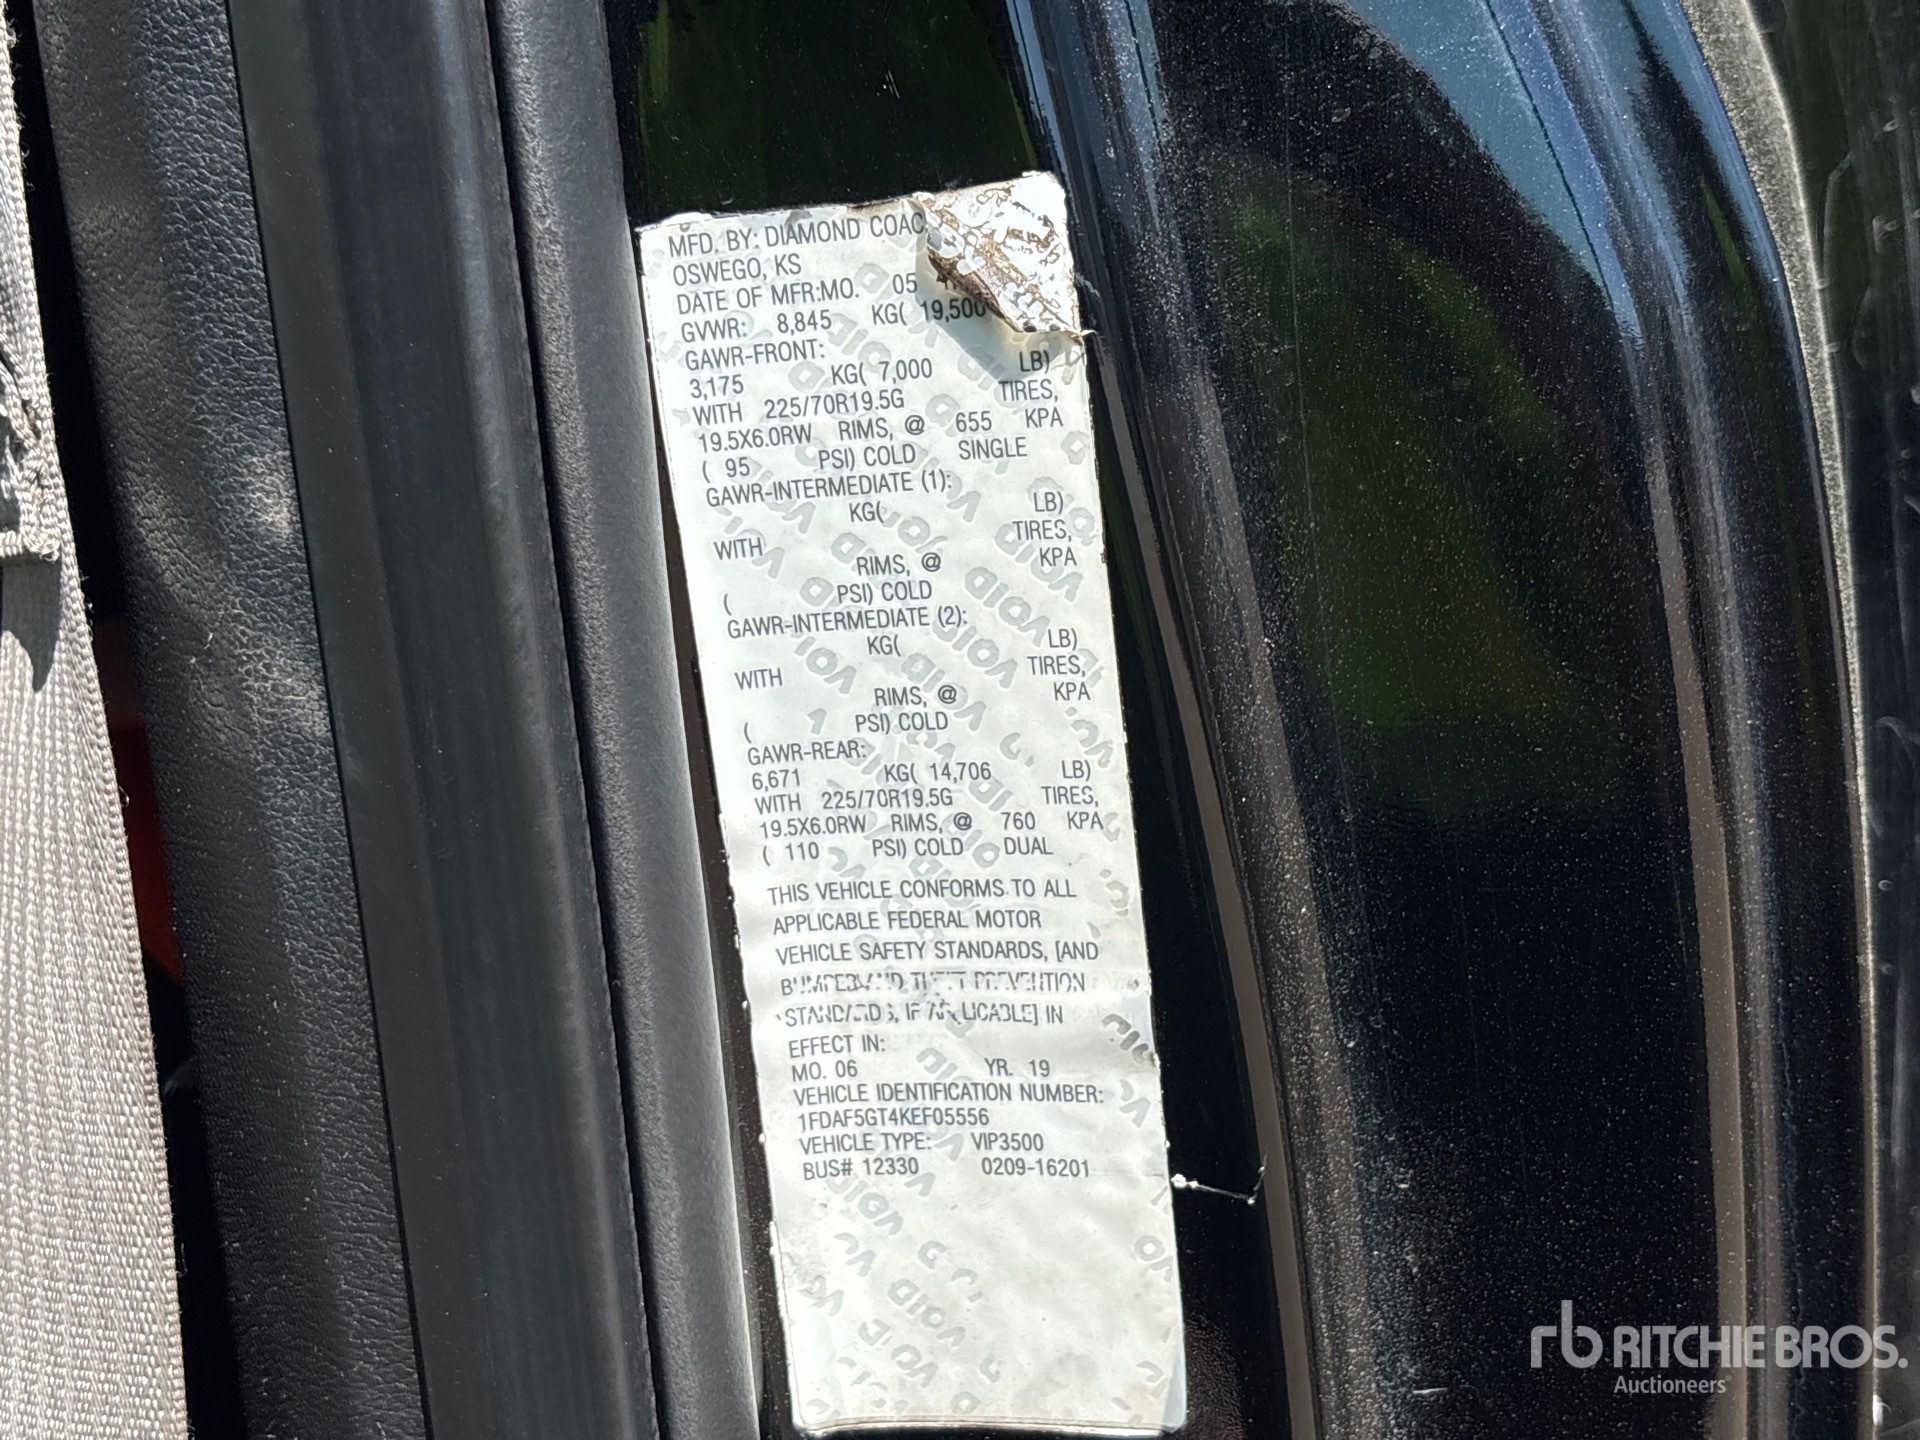 MFD. BY: DIAMOND COAC
OSWEGO, KS
DATE OF MFR:MO. 05
GVWR: 8,845 KG( 19,500
GAWR-FRONT:
3,175 KG( 7,000 LB)
WITH 225/70R19.5G TIRES,
19.5X6.0RW RIMS, @ 655 KPA
( 95 PSI) COLD SINGLE
GAWR-INTERMEDIATE (1):
KG( LB)
WITH TIRES,
RIMS, @ KPA
( PSI) COLD
GAWR-INTERMEDIATE (2):
KG( LB)
WITH TIRES,
RIMS, @ KPA
( PSI) COLD
GAWR-REAR:
6,671 KG( 14,706 LB)
WITH 225/70R19.5G TIRES,
19.5X6.0RW RIMS, @ 760 KPA
( 110 PSI) COLD DUAL
THIS VEHICLE CONFORMS TO ALL
APPLICABLE FEDERAL MOTOR
VEHICLE SAFETY STANDARDS, [AND
BUMPER AND THEFT PREVENTION
STANDARDS, IF APPLICABLE] IN
EFFECT IN:
MO. 06 YR. 19
VEHICLE IDENTIFICATION NUMBER:
1FDAF5GT4KEF05556
VEHICLE TYPE: VIP3500
BUS# 12330 0209-16201
rb RITCHIE BROS.
Auctioneers